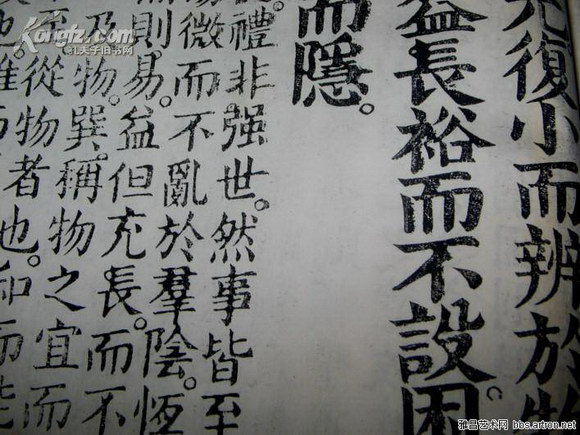 復小而辨於物
益長裕而不設。困
而隱。
禮非强世。然事皆至
微而不亂於羣陰。恆
則。易。益但充長。而不
及物。巽。稱物之宜而
至從物者也。和而能
也。
Kongfz.com
孔夫子旧书网
雅昌艺术网 bbs.artron.net